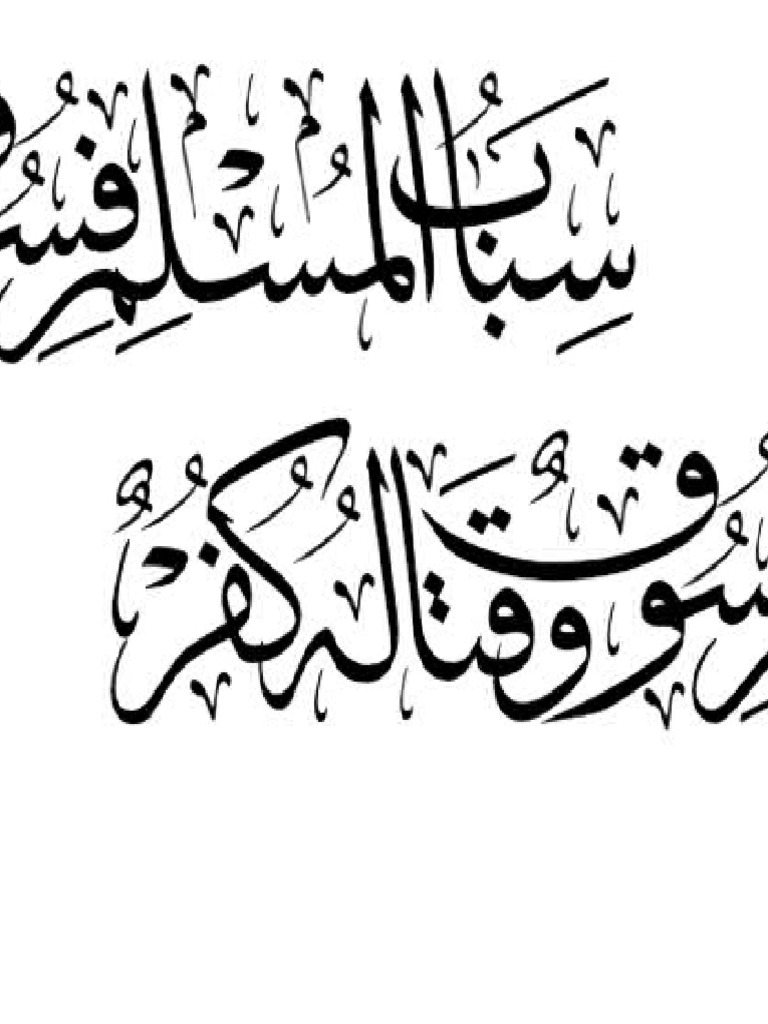 سِبَابُ الْمُسْلِمِ فُسُو
سُوقٌ وَقِتَالُهُ كُفْرٌ